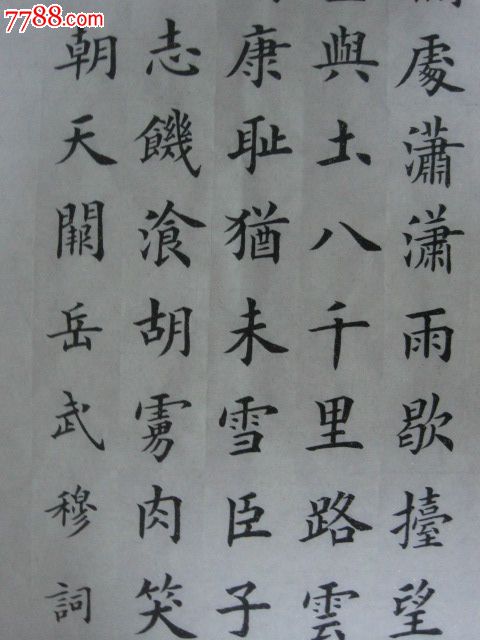 7788.com
中国收藏热线
處瀟瀟雨歇擡望
與土八千里路雲
康耻猶未雪臣子
志饑湌胡虜肉笑
朝天闕岳武穆詞